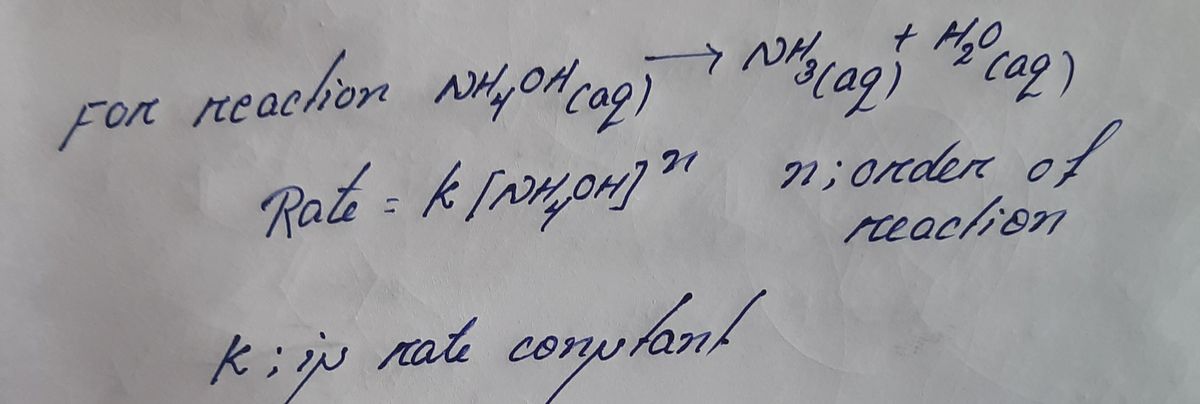 For reaction NH₄OH(aq) → NH₃(aq) + H₂O(aq)
Rate = k [NH₄OH]ⁿ n; order of
reaction
k; is rate constant